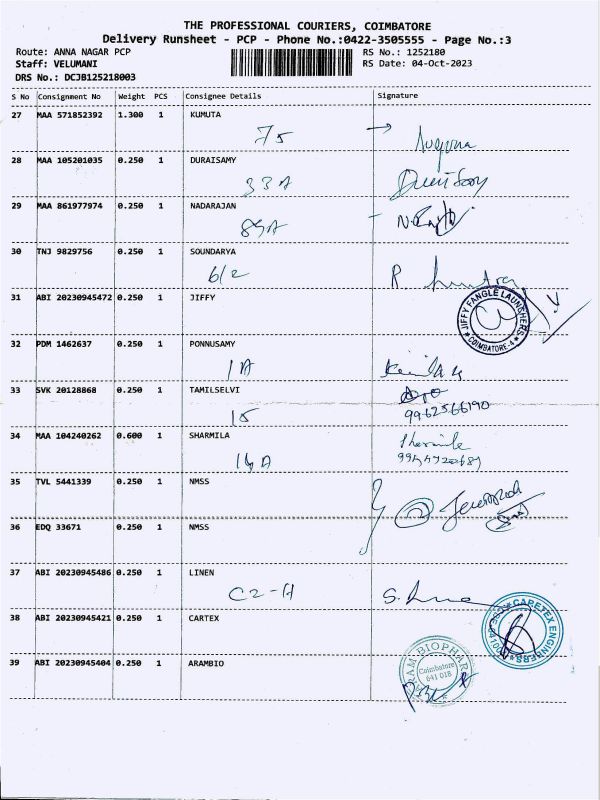 THE PROFESSIONAL COURIERS, COIMBATORE
Delivery Runsheet - PCP - Phone No.:0422-3505555 - Page No.:3
Route: ANNA NAGAR PCP RS No.: 1252180
Staff: VELUMANI RS Date: 04-Oct-2023
DRS No.: DCJB125218003
S No Consignment No Weight PCS Consignee Details Signature
27 MAA 571852392 1.300 1 KUMUTA
75
28 MAA 105201035 0.250 1 DURAISAMY
33A
29 MAA 861977974 0.250 1 NADARAJAN
89A
30 TNJ 9829756 0.250 1 SOUNDARYA
6/2
31 ABI 20230945472 0.250 1 JIFFY
JIFFY FANGLE LAUNSHERS
COIMBATORE-4
32 PDM 1462637 0.250 1 PONNUSAMY
1A
33 SVK 20128868 0.250 1 TAMILSELVI
15 9962566190
34 MAA 104240262 0.600 1 SHARMILA
14A
35 TVL 5441339 0.250 1 NMSS
36 EDQ 33671 0.250 1 NMSS
37 ABI 20230945486 0.250 1 LINEN
C2-H
38 ABI 20230945421 0.250 1 CARTEX
CARETEX ENGINEERS
39 ABI 20230945404 0.250 1 ARAMBIO
Coimbatore
641 018